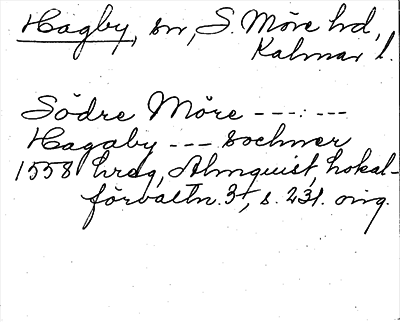 Hagby, sn, S. Möre hd,
Kalmar l.
Södre Möre - - - : - - -
Hagaby - - - Sochner
1558 hreg, Almquist, Lokal-
förvaltn. 3, s. 231. orig.